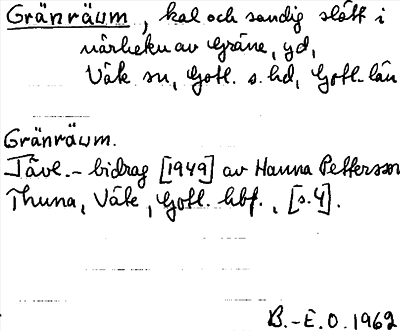 Gränräum, kal och sandig slätt i
närheten av Gräne, gd,
Väte sn, Gotl. s. hd, Gotl. län
Gränräum.
Tävl.- bidrag [1949] av Hanna Pettersson
Thuna, Väte, Gotl. hbf., [s.4].
B.-E.O. 1962